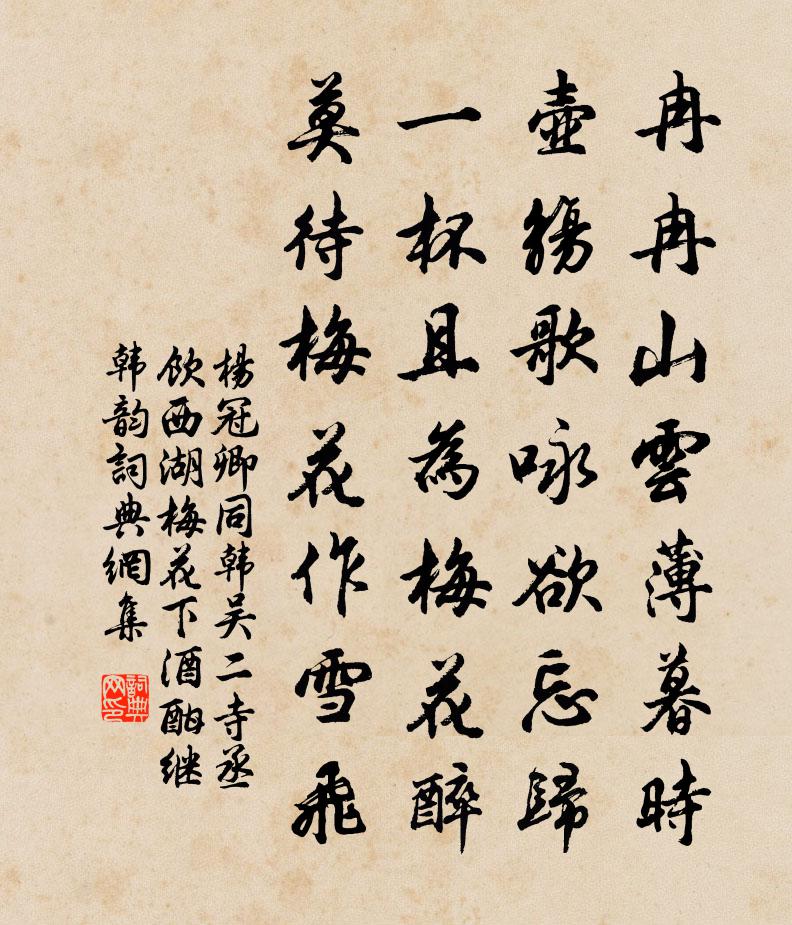 冉冉山雲薄暮時
壺觴歌咏欲忘歸
一杯且為梅花醉
莫待梅花作雪飛
楊冠卿同韩吴二寺丞
飲西湖梅花下酒酣继
韩韵詞典網集
詞典网印